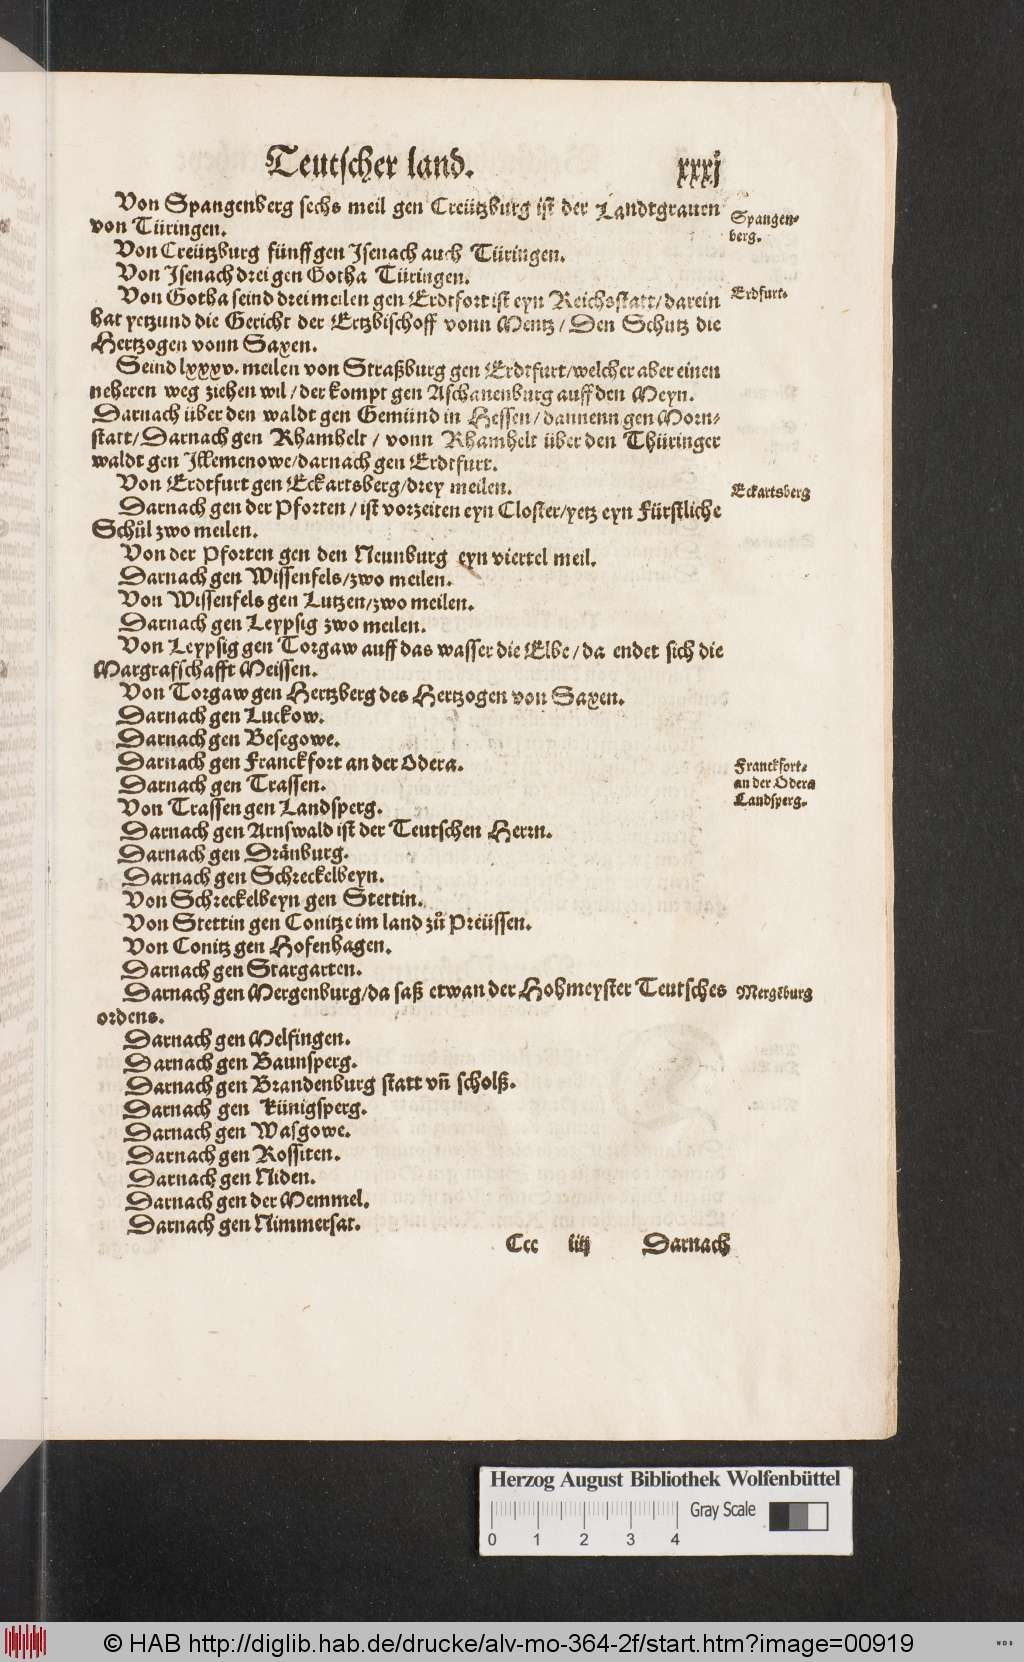 Teutscher land. xxxj
Von Spangenberg sechs meil gen Creützburg ist der Landtgrauen
von Türingen.
Spangen-
berg.
Von Creützburg fünff gen Isenach auch Türingen.
Von Isenach drei gen Gotha Türingen.
Von Gotha seind drei meilen gen Erdtfort ist eyn Reichsstatt/darein
Erdfurt.
hat yetzund die Gericht der Ertzbischoff vonn Mentz/Den Schutz die
Hertzogen vonn Saxen.
Seind lxxxv. meilen von Straßburg gen Erdtfurt/welcher aber einen
neheren weg ziehen wil/der kompt gen Aschanenburg auff den Meyn.
Darnach über den waldt gen Gemünd in Hessen/dannenn gen Morn-
statt/Darnach gen Rhamhelt/vonn Rhamhelt über den Thüringer
waldt gen Ilkemenowe/darnach gen Erdtfurt.
Von Erdtfurt gen Eckartsberg/drey meilen.
Eckartsberg
Darnach gen der Pforten/ist vorzeiten eyn Closter/yetz eyn Fürstliche
Schül zwo meilen.
Von der Pforten gen den Neunburg eyn viertel meil.
Darnach gen Wissenfels/zwo meilen.
Von Wissenfels gen Lutzen/zwo meilen.
Darnach gen Leypsig zwo meilen.
Von Leypsig gen Torgaw auff das wasser die Elbe/da endet sich die
Margrafschafft Meissen.
Von Torgaw gen Hertzberg des Hertzogen von Saxen.
Darnach gen Luckow.
Darnach gen Besegowe.
Darnach gen Franckfort an der Odera.
Franckfort-
an der Odera
Darnach gen Trassen.
Von Trassen gen Landsperg.
Landsperg.
Darnach gen Arnswald ist der Teutschen Herrn.
Darnach gen Dränburg.
Darnach gen Schreckelbeyn.
Von Schreckelbeyn gen Stettin.
Von Stettin gen Conitze im land zů Preüssen.
Von Conitz gen Hofenhagen.
Darnach gen Stargarten.
Darnach gen Mergenburg/da saß etwan der Hohmeyster Teutsches
Mergēburg
ordens.
Darnach gen Melfingen.
Darnach gen Baunsperg.
Darnach gen Brandenburg statt vñ scholß.
Darnach gen Künigsperg.
Darnach gen Wasgowe.
Darnach gen Rossiten.
Darnach gen Niden.
Darnach gen der Memmel.
Darnach gen Nimmersat.
Ccc iiij Darnach
Herzog August Bibliothek Wolfenbüttel
Gray Scale
0 1 2 3 4
© HAB http://diglib.hab.de/drucke/alv-mo-364-2f/start.htm?image=00919